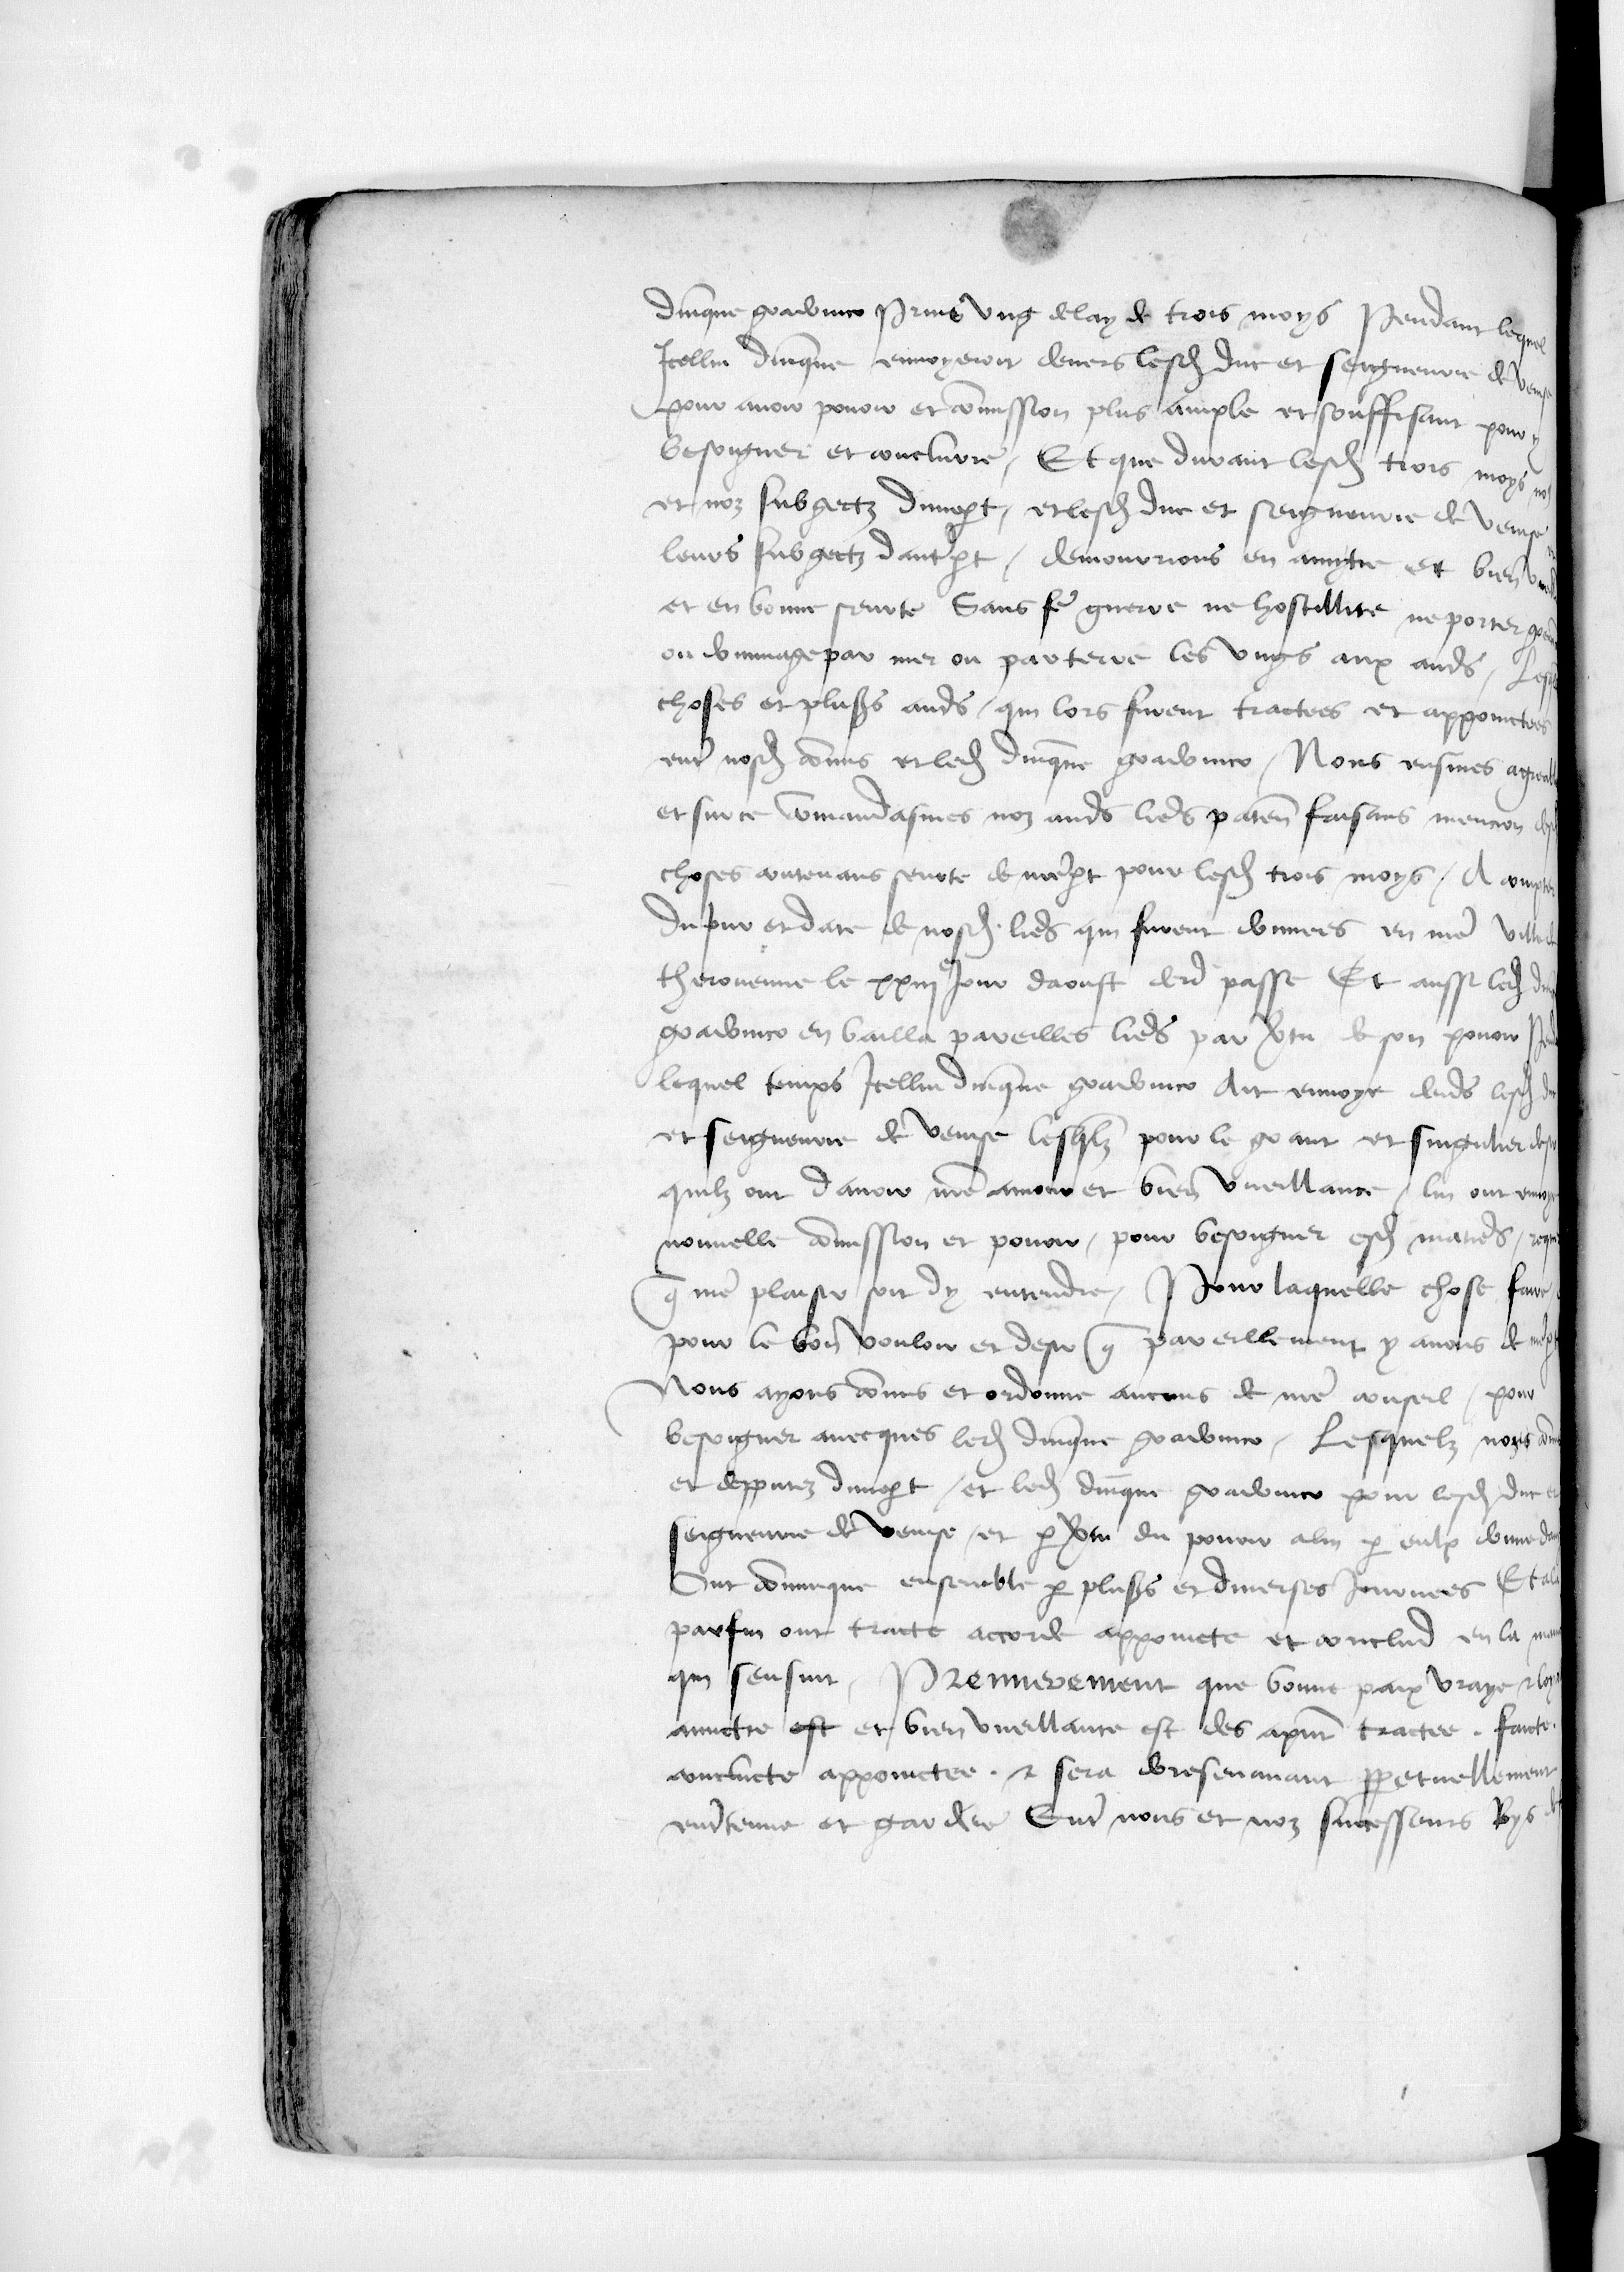 Dminque gradinico prins ung delay de trois moys Pendant lequel
Icellui Dminque envoyeroit devers lesd duc et seigneurie de venise
pour avoir povoir et commission plus ample et souffisant pour y
besongner et conclurre / Et que durant lesd trois moys nous
et noz subgectz dunepart / et lesd duc et seigneurie de venise et
leurs subgectz dautrepart / demourrions en amytie et bien
et en bonne seurte Sans fe guerre ne hostillite ne porter
ou dommage par mer ou par terre les ungs aux auds /
choses et plusrs auds / qui lors furent tractees et appoinctees
entr nosd commis et led Dminque gradinico / Nous eusmes
et sur ce commandasmes noz auds lreds paten faisans mencion
choses contenans seurte de nrepart pour lesd trois moys / A compter
Du jour et date de nosd lreds qui furent donnees en nre ville
therouenne le xxiiie Jour daoust derd passe Et aussi led
gradinico en bailla pareilles lreds par vertu de son povoir
lequel temps Icellui Dminque gradinico Ait envoye devds lesd duc
et seigneurie de venise lesqlz pour le grant et singulier desir
quilz ont davoir nre amour et bien vueillance / lui ont envoye
nouvelle commission et povoir / pour besongner esd matieds /
q nre plaisir soit dy entendre / Pour laquelle chose faire
pour le bon vouloir et desir q pareillement y avons de nrepart
Nous ayons commis et ordonne aucuns de nre conseil / pour
besongner avecques led Dminque gradinico / Lesquelz noz
et depputez dunepart / et led Dminque gradinico pour lesd duc et
seigneurie de venise / et p vertu du povoir a lui p eulx donne
Ont communique ensemble p plusrs et diverses Journees Et a la
parfin ont tracte accorde appoincte et conclud en la
qui sensuit / Premierement que bonne paix vraye &
amictie est et bien vueillance est des apnt tractee . faicte .
concluete appoinctee . & sera doresenavant ppetuellement
entrtenue et gardee Entr nous et noz successeurs Roys